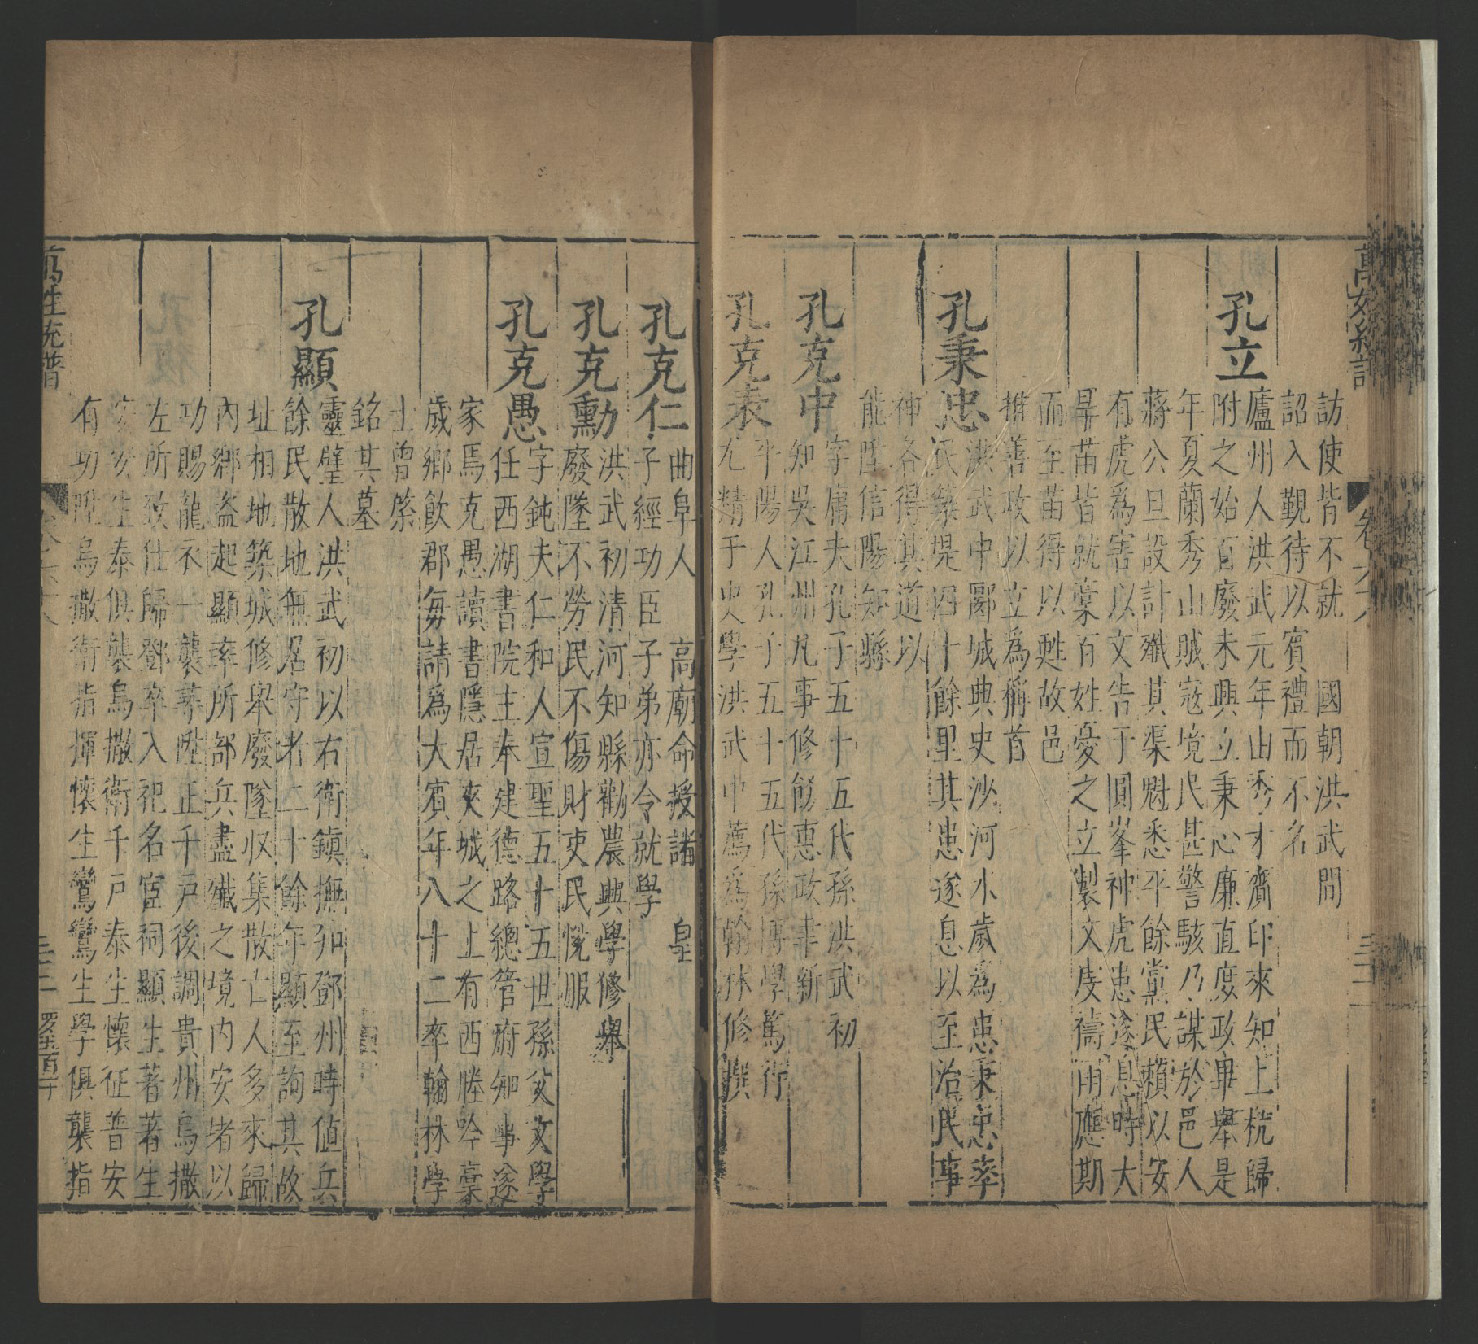 萬姓統譜
卷六十八
訪使皆不就　國朝洪武問
詔入覲待以賓禮而不名
孔立
廬州人洪武元年山秀才齎印來知上杭歸
附之始百廢未興立秉心廉直庋政畢舉是
年夏蘭秀山賊寇境民甚警駭乃謀於邑人
蔣公旦設計殲其渠魁悉平餘黨民賴以安
有虎爲害以文告于圓峯神虎患遂息時大
旱苗皆就藁百姓憂之立製文度禱雨應期
而至苗得以甦故邑
推善政以立爲稱首
孔秉忠
洪武中郾城典史沙河水歲為患秉忠率
民築堤四十餘里其患遂息以至治民事
神各得其道以
能陞信陽知縣
孔克中
字庸夫孔子五十五代孫洪武初
知吳江州凡事修飭惠政聿新
孔克表
平陽人孔子五十五代孫博學篤行
尤精于史學洪武中薦爲翰林修撰
孔克仁
曲阜人　高廟命授諸　皇
子經功臣子弟亦令就學
孔克勳
洪武初清河知縣勸農典學修舉
廢墜不勞民不傷財吏民悅服
孔克愚
字鈍夫仁和人宣聖五十五世孫父文學
任西湖書院主奉建德路總管府知事遂
家焉克愚讀書隱居夾城之上有西塍吟藁
歲鄉飲郡每請爲大賓年八十二卒翰林學
士曾棨
銘其墓
孔顯
靈璧人洪武初以右衛鎮撫知鄧州時值兵
餘民散地無居守者二十餘年顯至詢其故
址相地築城修舉廢墜収集散亡人多來歸
內鄉盜起顯率所部兵盡殲之境内安堵以
功賜龍衣一襲尋陞正千戸後調貴州烏撒
左所致仕歸鄧卒入祀名宦祠顯生著著生
安安生泰俱襲烏撒衛千戸泰生懷征普安
有功陞烏撒衛指揮懷生鸞鸞生學俱襲指
萬姓統譜